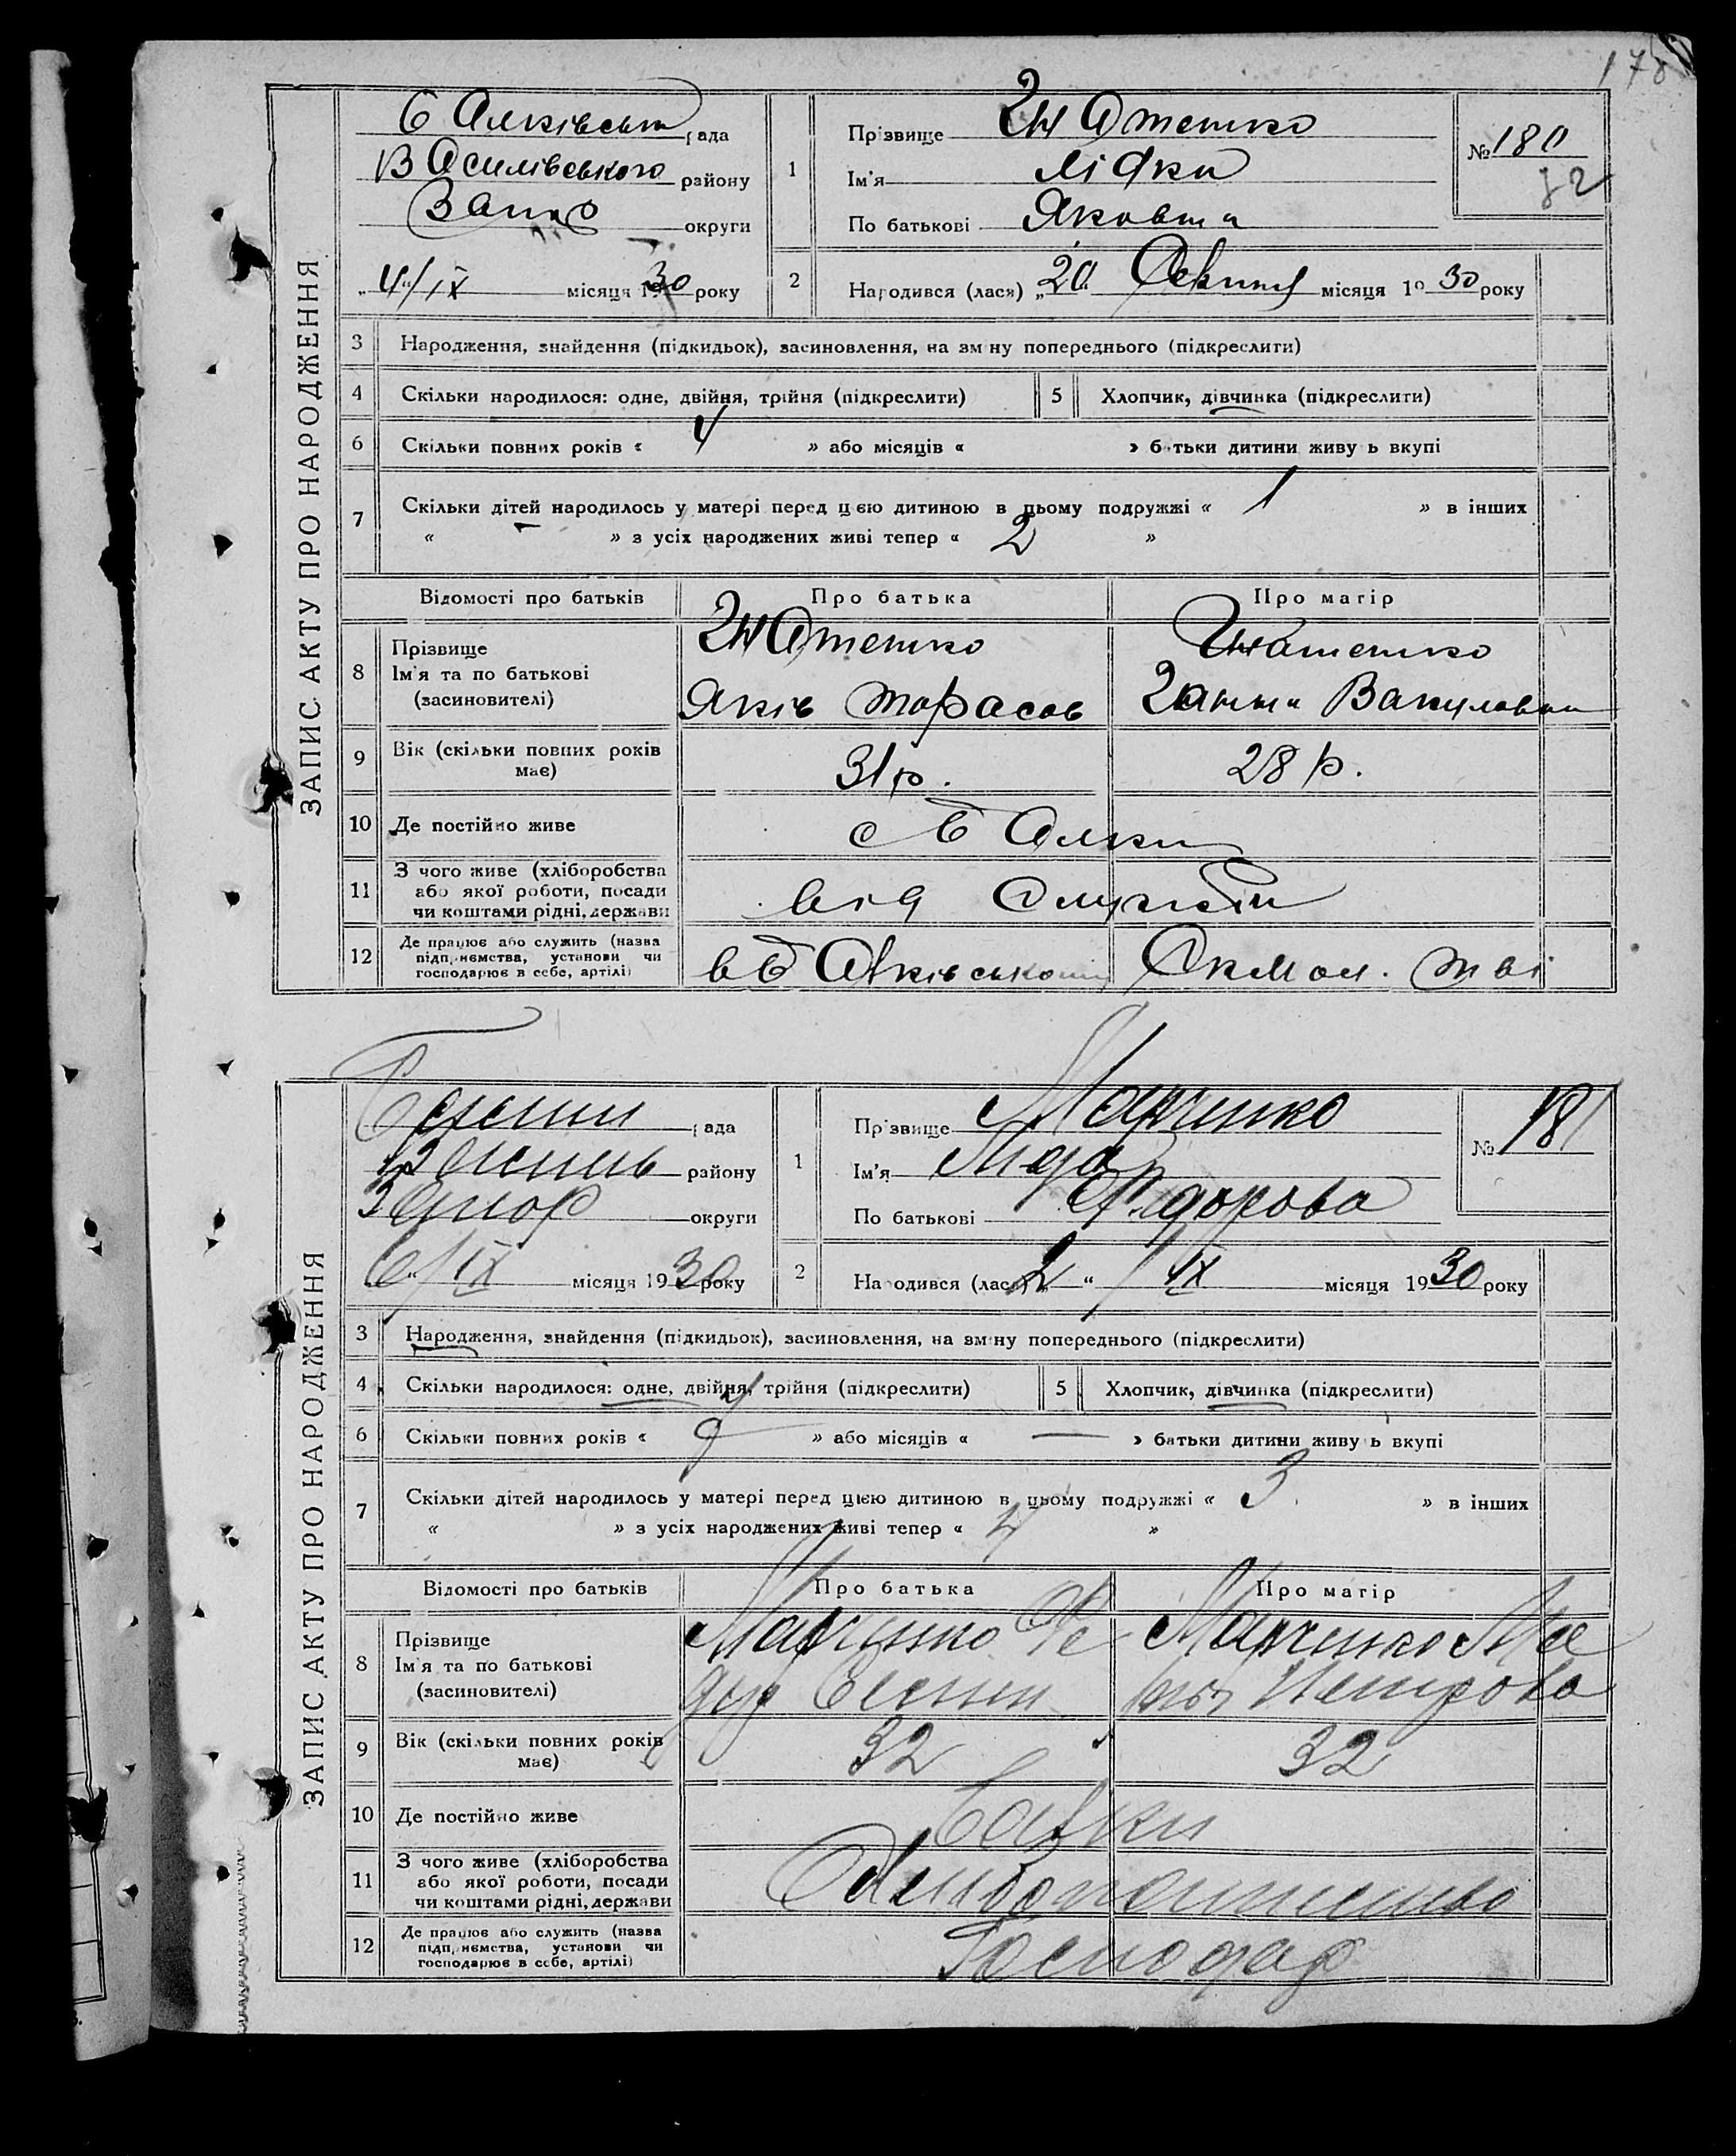 178
ЗАПИС АКТУ ПРО НАРОДЖЕННЯ
Балківська рада
Василівського району
Запор округи
„4“/IX місяця 1930 року
1 Прізвище Гнатенко
Ім'я Лідія
По батькові Яковна
№ 180
72
2 Народився (лася) „20“ Серпня місяця 1930 року
3 Народження, знайдення (підкидьок), засиновлення, на зміну попереднього (підкреслити)
4 Скільки народилося: одне, двійня, трійня (підкреслити)
5 Хлопчик, дівчинка (підкреслити)
6 Скільки повних років « 4 » або місяців « » батьки дитини живуть вкупі
7 Скільки дітей народилось у матері перед цією дитиною в цьому подружжі « 1 » в інших
« – » з усіх народжених живі тепер « 2 »
Відомості про батьків Про батька Про матір
8 Прізвище Гнатенко Гнатенко
Ім'я та по батькові
(засиновителі) Яків Тарасов Ганна Вакуловна
9 Вік (скільки повних років має) 31 р. 28 р.
10 Де постійно живе с Балки
11 З чого живе (хліборобства
або якої роботи, посади
чи коштами рідні, держави від служби
12 Де працює або служить (назва
підприємства, установи чи
господарює в себе, артілі) в Балківському мол. т-ві
ЗАПИС АКТУ ПРО НАРОДЖЕННЯ
рада
Василів району
Запор округи
6/IX місяця 1930 року
1 Прізвище Марченко
Ім'я Лида
По батькові Федорова
№ 181
2 Народився (лася) „2“ IX місяця 1930 року
3 Народження, знайдення (підкидьок), засиновлення, на зміну попереднього (підкреслити)
4 Скільки народилося: одне, двійня, трійня (підкреслити)
5 Хлопчик, дівчинка (підкреслити)
6 Скільки повних років « 9 » або місяців « — » батьки дитини живуть вкупі
7 Скільки дітей народилось у матері перед цією дитиною в цьому подружжі « 3 » в інших
« » з усіх народжених живі тепер « 4 »
Відомості про батьків Про батька Про матір
8 Прізвище Марченко Фе Марченко
Ім'я та по батькові
(засиновителі) дор Петрова
9 Вік (скільки повних років має) 32 32
10 Де постійно живе Балки
11 З чого живе (хліборобства
або якої роботи, посади
чи коштами рідні, держави
12 Де працює або служить (назва
підприємства, установи чи
господарює в себе, артілі) Господар